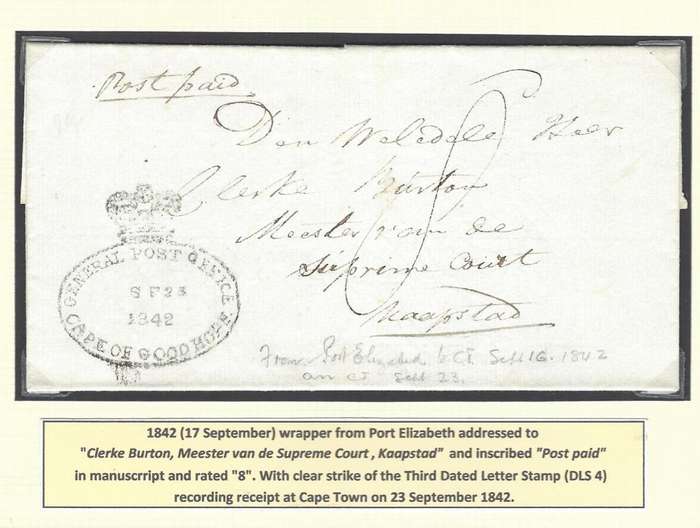 Post paid
Den Weledele Heer
Clerke Burton
Meester van de
Supreme Court
Kaapstad
8
GENERAL POST OFFICE
SE23
1842
CAPE OF GOOD HOPE
From Port Elizabeth to CT. Sept 16. 1842
arr CT Sept 23.
1842 (17 September) wrapper from Port Elizabeth addressed to
"Clerke Burton, Meester van de Supreme Court , Kaapstad" and inscribed "Post paid"
in manuscrript and rated "8". With clear strike of the Third Dated Letter Stamp (DLS 4)
recording receipt at Cape Town on 23 September 1842.